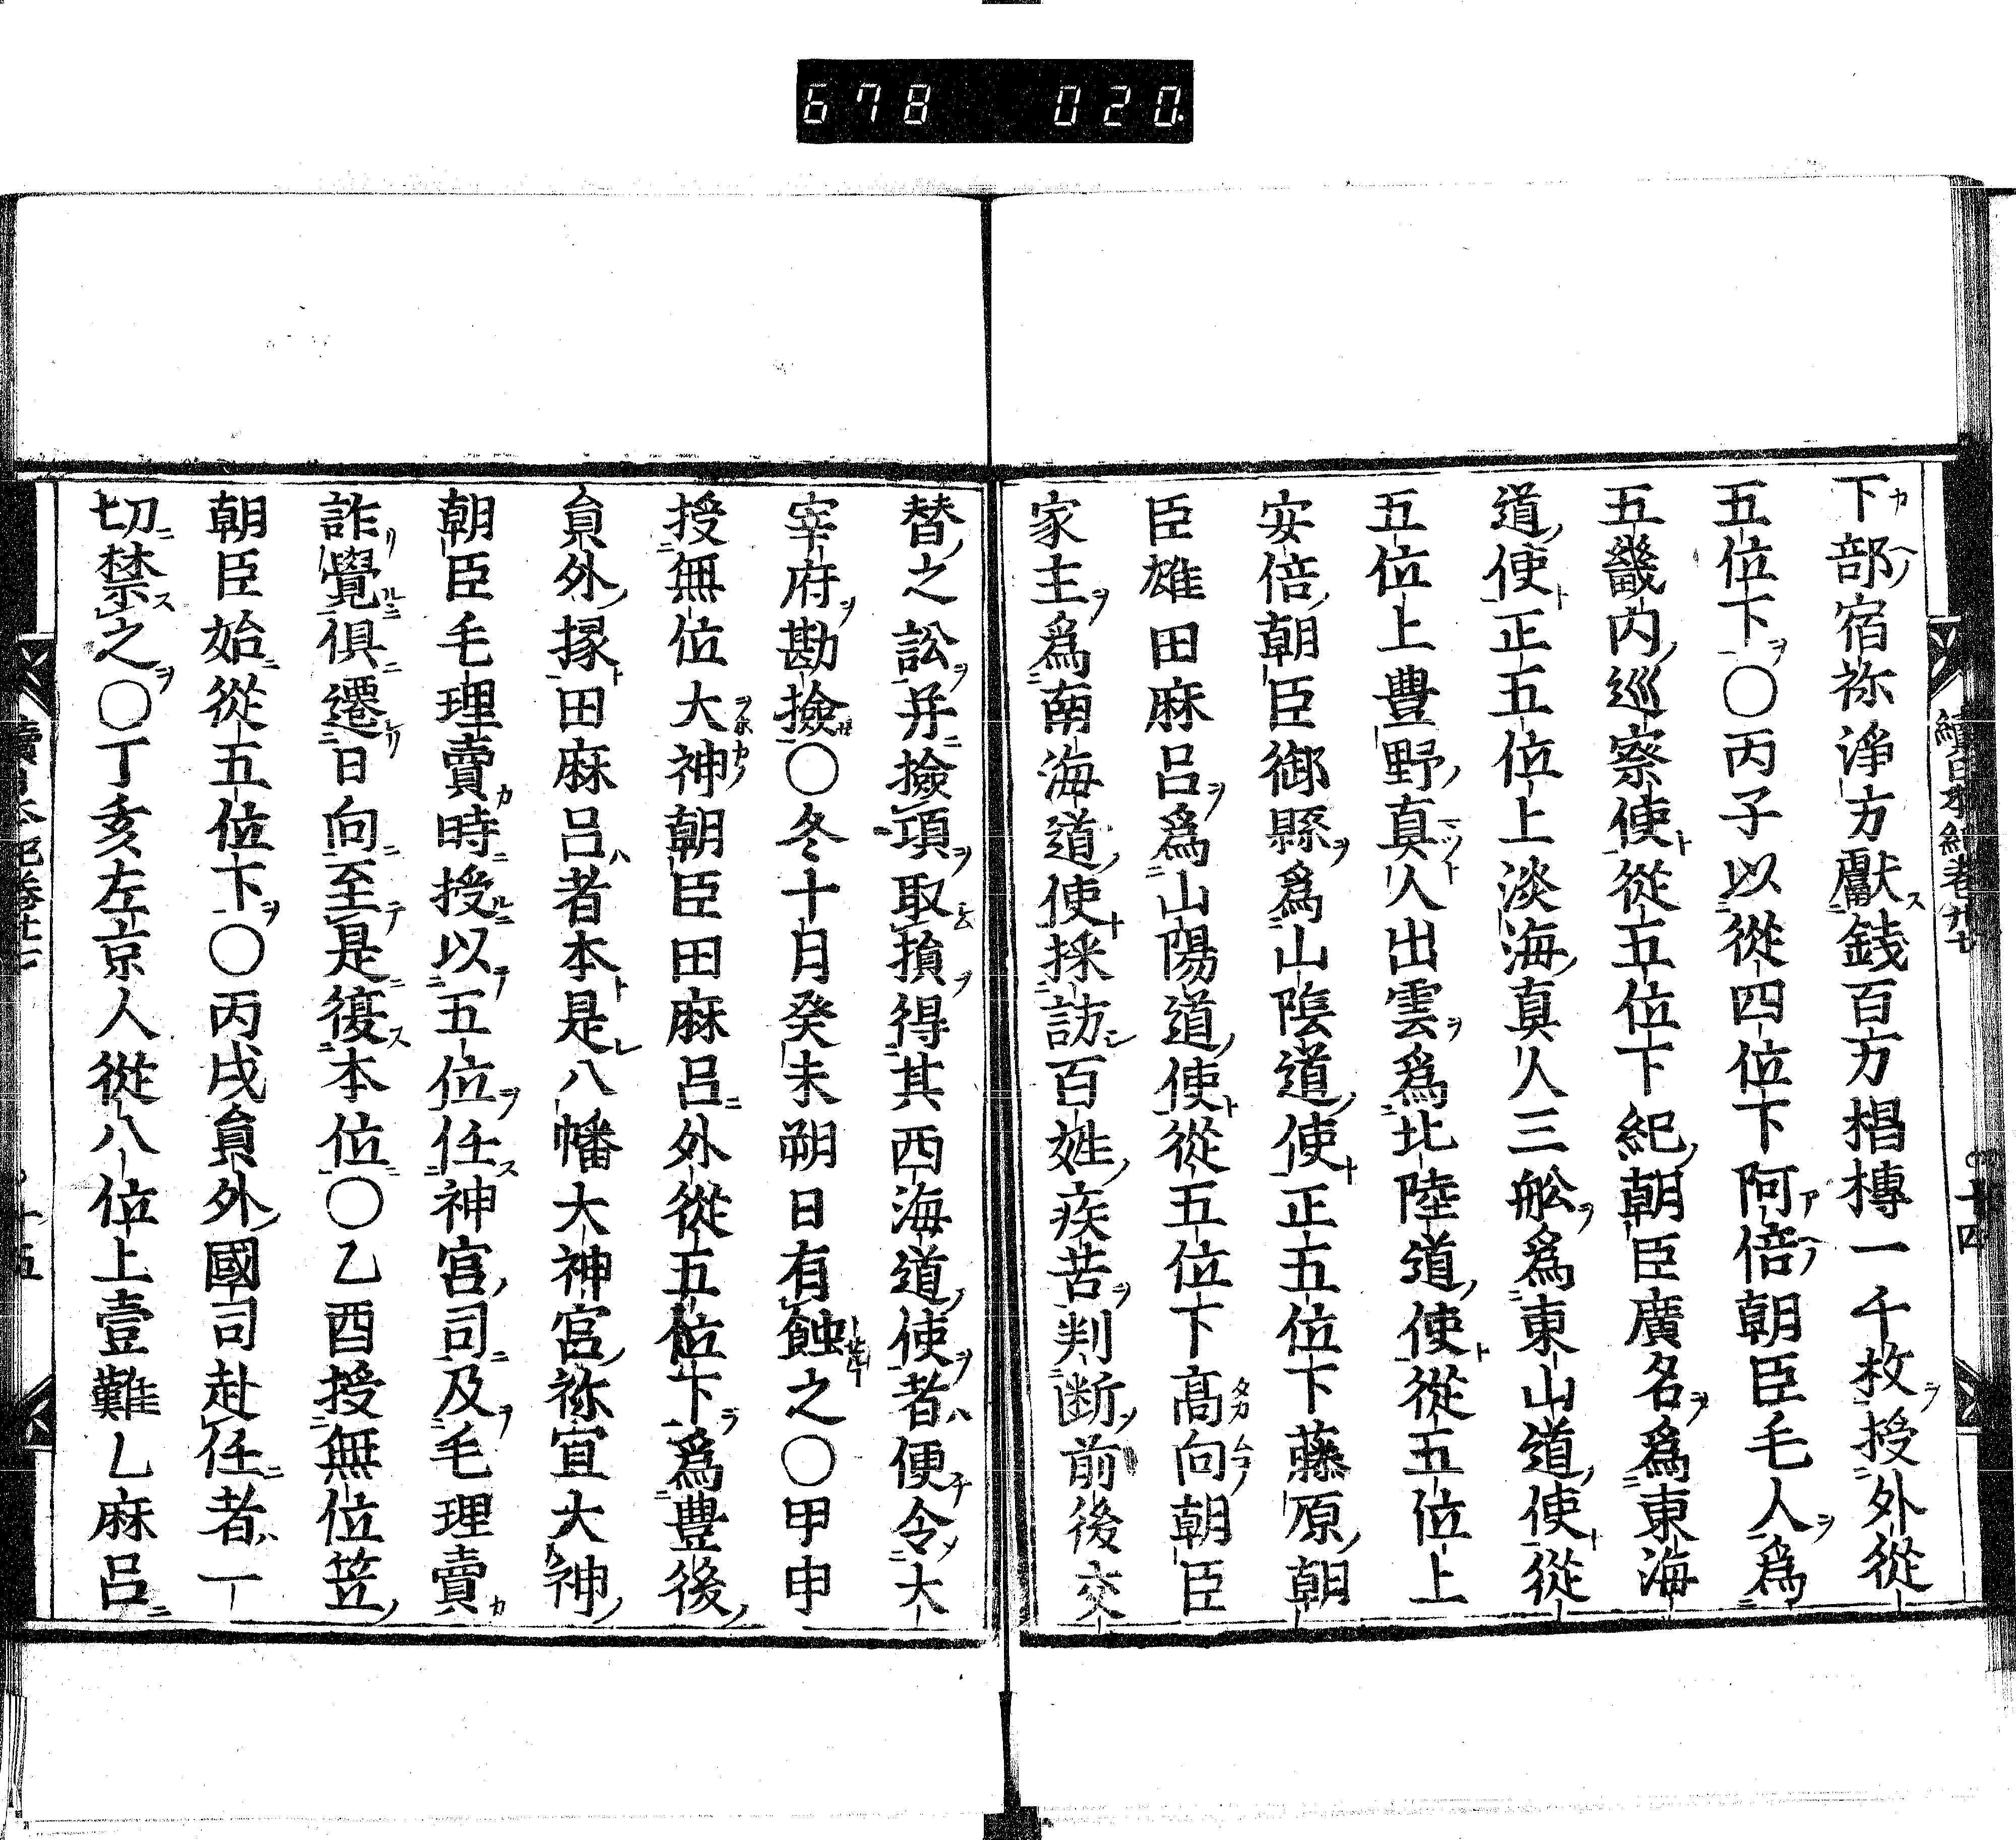 678 020
續日本紀卷廿七 十四
下部宿祢淨方獻錢百万椙榑一千枚授外從
五位下〇丙子以從四位下阿倍朝臣毛人爲
五畿内巡察使從五位下紀朝臣廣名爲東海
道使正五位上淡海真人三舩爲東山道使從
五位上豊野真人出雲爲北陸道使從五位上
安倍朝臣御縣爲山陰道使正五位下藤原朝
臣雄田麻呂爲山陽道使從五位下髙向朝臣
家主爲南海道使採訪百姓疾苦判断前後交
替之訟并撿項取損得其西海道使者便令大
宰府勘撿〇冬十月癸未朔日有蝕之〇甲申
授無位大神朝臣田麻呂外從五位下爲豊後
貟外掾田麻呂者本是八幡大神宮祢宜大神
朝臣毛理賣時授以五位任神宮司及毛理賣
詐覺俱遷日向至是復本位〇乙酉授無位笠
朝臣始從五位下〇丙戌貟外國司赴任者一
切禁之〇丁亥左京人從八位上壹難乚麻呂
續日本紀卷廿七 十五